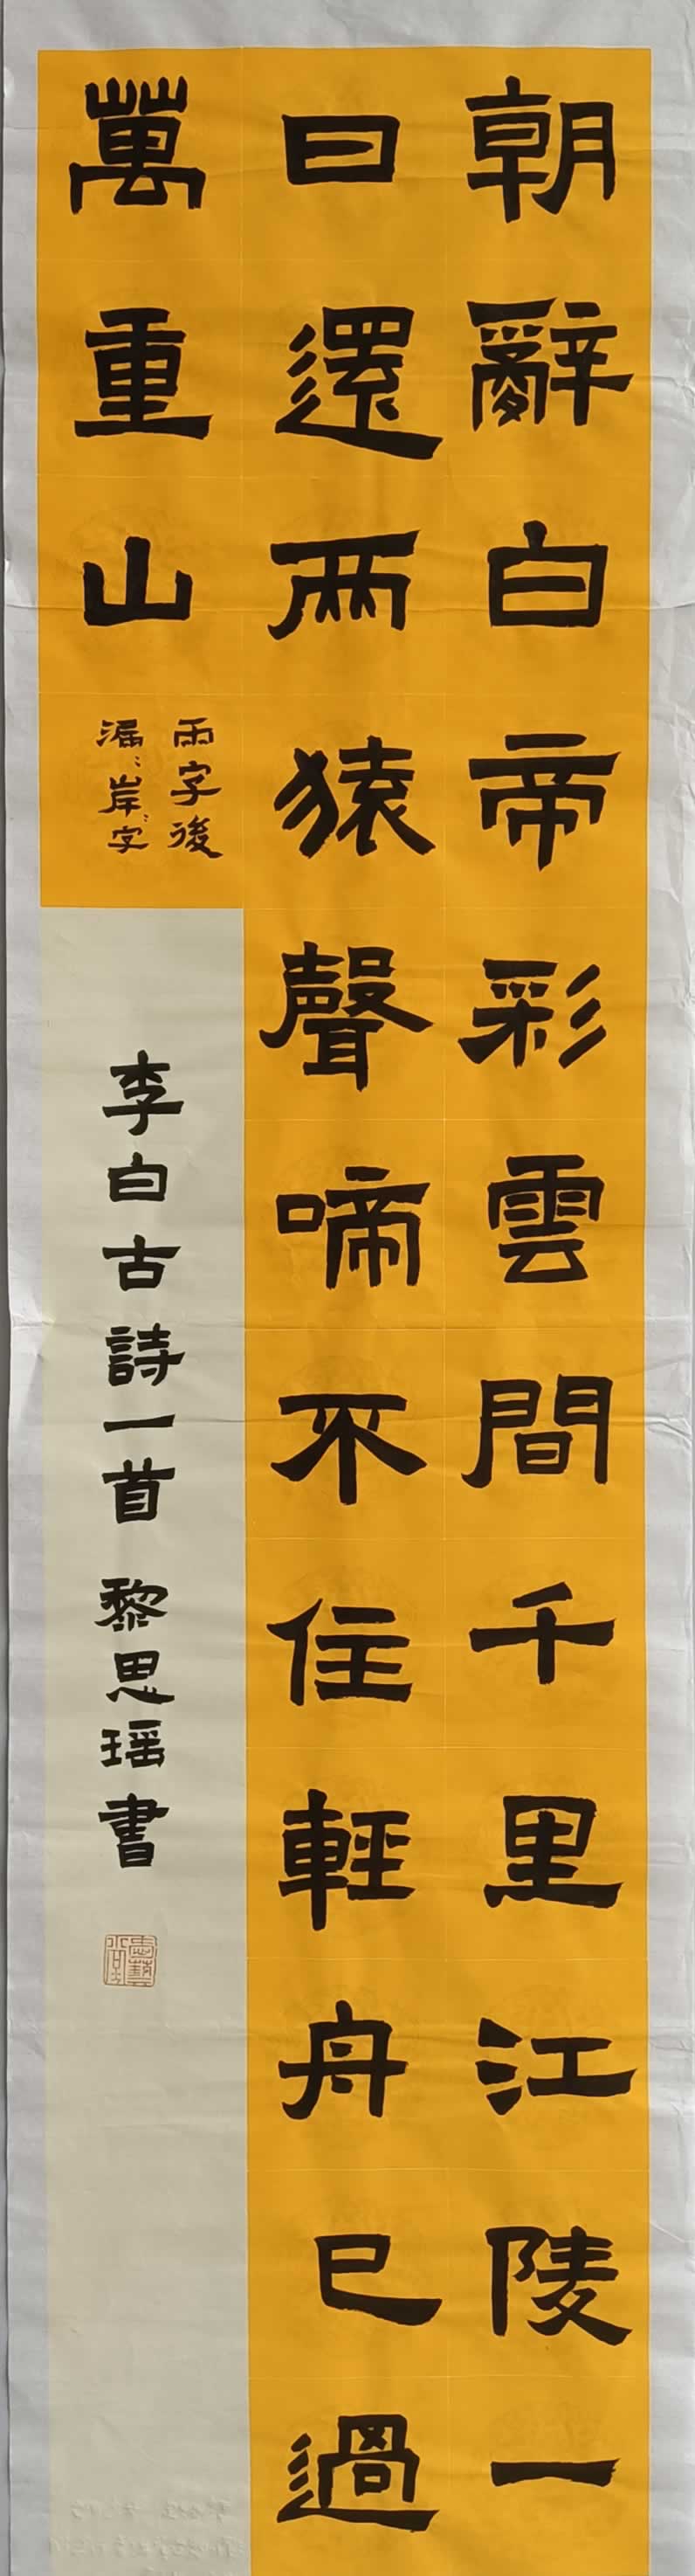 朝辭白帝彩雲間千里江陵一
日還两猿聲啼不住輕舟已過
萬重山
兩字後
漏〻岸〻字
李白古詩一首 黎思瑶書